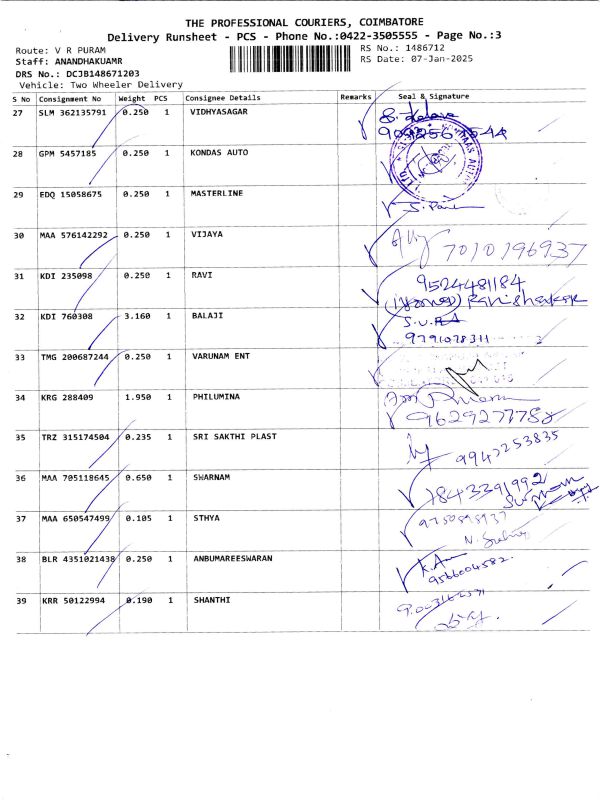 THE PROFESSIONAL COURIERS, COIMBATORE
Delivery Runsheet - PCS - Phone No.:0422-3505555 - Page No.:3
Route: V R PURAM
RS No.: 1486712
Staff: ANANDHAKUAMR
RS Date: 07-Jan-2025
DRS No.: DCJB148671203
Vehicle: Two Wheeler Delivery
S No Consignment No Weight PCS Consignee Details Remarks Seal & Signature
27 SLM 362135791 0.250 1 VIDHYASAGAR
28 GPM 5457185 0.250 1 KONDAS AUTO
29 EDQ 15058675 0.250 1 MASTERLINE
30 MAA 576142292 0.250 1 VIJAYA 7010196937
31 KDI 235098 0.250 1 RAVI 9524481184
32 KDI 760308 3.160 1 BALAJI
9791078311
33 TMG 200687244 0.250 1 VARUNAM ENT
34 KRG 288409 1.950 1 PHILUMINA
9629277788
35 TRZ 315174504 0.235 1 SRI SAKTHI PLAST 9947253835
36 MAA 705118645 0.650 1 SWARNAM 7843391992
37 MAA 650547499 0.105 1 STHYA
38 BLR 4351021438 0.250 1 ANBUMAREESWARAN
9566004582
39 KRR 50122994 0.190 1 SHANTHI